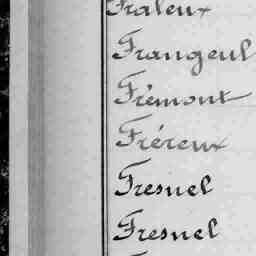 Fraleux
Frangeul
Frémont
Fréreux
Fresnel
Fresnel